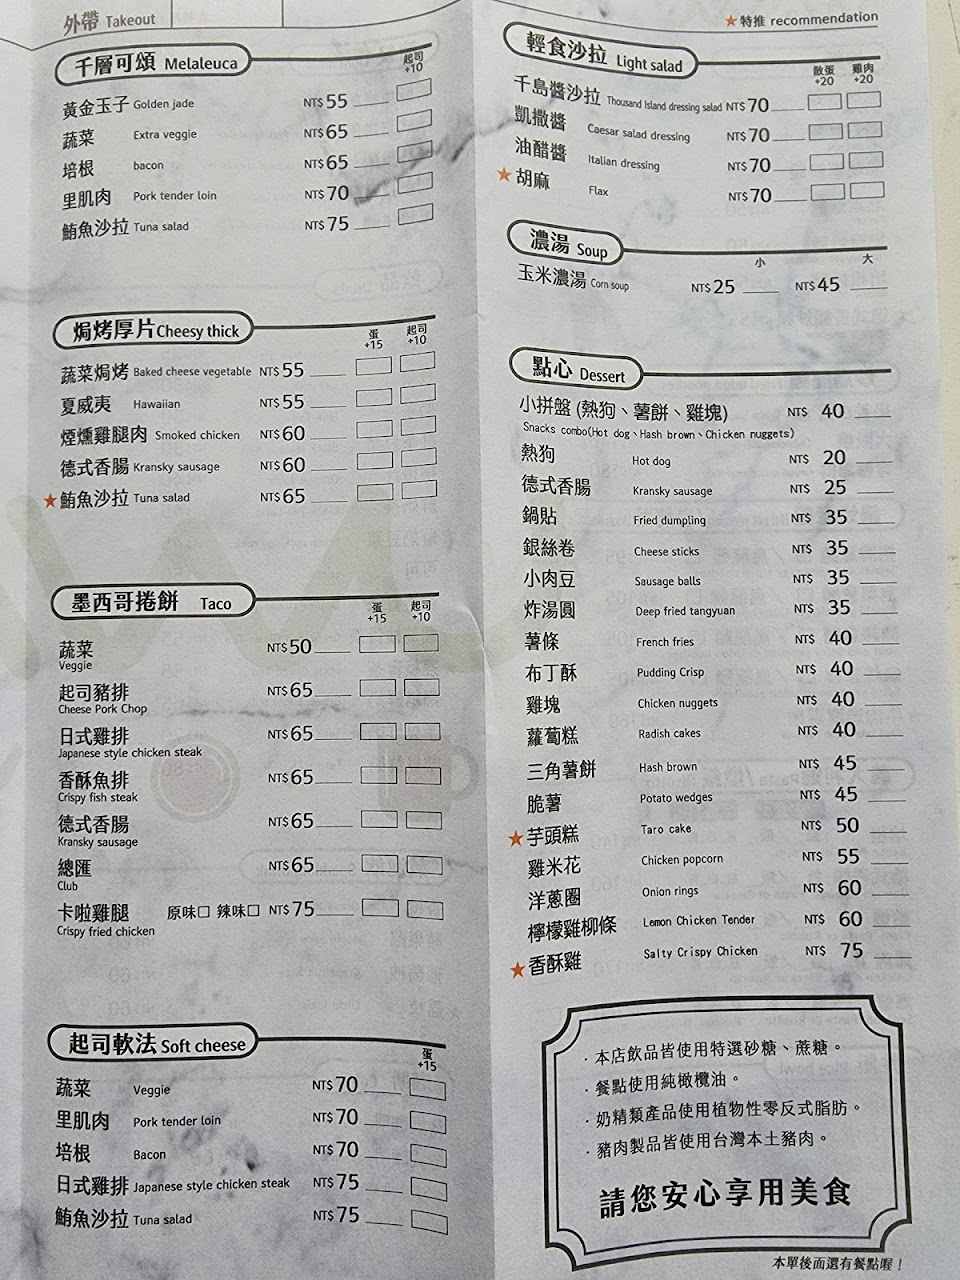 外帶 Takeout
★特推 recommendation
千層可頌 Melaleuca
起司 +10
黃金玉子 Golden jade NT$ 55
蔬菜 Extra veggie NT$ 65
培根 bacon NT$ 65
里肌肉 Pork tender loin NT$ 70
鮪魚沙拉 Tuna salad NT$ 75
焗烤厚片 Cheesy thick
蛋 +15 起司 +10
蔬菜焗烤 Baked cheese vegetable NT$ 55
夏威夷 Hawaiian NT$ 55
煙燻雞腿肉 Smoked chicken NT$ 60
德式香腸 Kransky sausage NT$ 60
★鮪魚沙拉 Tuna salad NT$ 65
墨西哥捲餅 Taco
蛋 +15 起司 +10
蔬菜 NT$ 50
Veggie
起司豬排 NT$ 65
Cheese Pork Chop
日式雞排 NT$ 65
Japanese style chicken steak
香酥魚排 NT$ 65
Crispy fish steak
德式香腸 NT$ 65
Kransky sausage
總匯 NT$ 65
Club
卡啦雞腿 原味□ 辣味□ NT$ 75
Crispy fried chicken
起司軟法 Soft cheese
蛋 +15
蔬菜 Veggie NT$ 70
里肌肉 Pork tender loin NT$ 70
培根 Bacon NT$ 70
日式雞排 Japanese style chicken steak NT$ 75
鮪魚沙拉 Tuna salad NT$ 75
輕食沙拉 Light salad
散蛋 +20 雞肉 +20
千島醬沙拉 Thousand Island dressing salad NT$ 70
凱撒醬 Caesar salad dressing NT$ 70
油醋醬 Italian dressing NT$ 70
★胡麻 Flax NT$ 70
濃湯 Soup
小 大
玉米濃湯 Corn soup NT$ 25 NT$ 45
點心 Dessert
小拼盤 (熱狗、薯餅、雞塊) NT$ 40
Snacks combo(Hot dog、Hash brown、Chicken nuggets)
熱狗 Hot dog NT$ 20
德式香腸 Kransky sausage NT$ 25
鍋貼 Fried dumpling NT$ 35
銀絲卷 Cheese sticks NT$ 35
小肉豆 Sausage balls NT$ 35
炸湯圓 Deep fried tangyuan NT$ 35
薯條 French fries NT$ 40
布丁酥 Pudding Crisp NT$ 40
雞塊 Chicken nuggets NT$ 40
蘿蔔糕 Radish cakes NT$ 40
三角薯餅 Hash brown NT$ 45
脆薯 Potato wedges NT$ 45
★芋頭糕 Taro cake NT$ 50
雞米花 Chicken popcorn NT$ 55
洋蔥圈 Onion rings NT$ 60
檸檬雞柳條 Lemon Chicken Tender NT$ 60
★香酥雞 Salty Crispy Chicken NT$ 75
·本店飲品皆使用特選砂糖、蔗糖。
·餐點使用純橄欖油。
·奶精類產品使用植物性零反式脂肪。
·豬肉製品皆使用台灣本土豬肉。
請您安心享用美食
本單後面還有餐點喔！